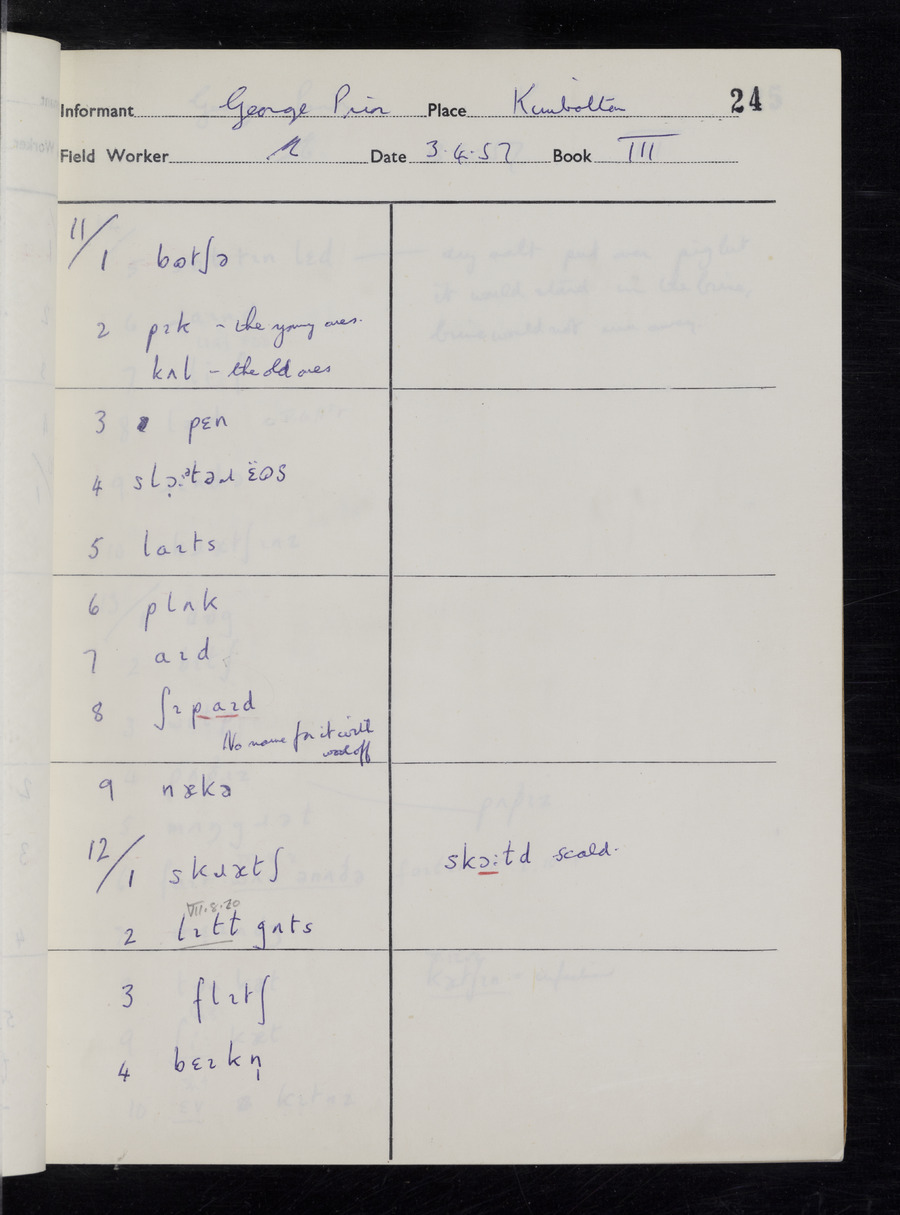 Informant George Prior Place Kimbolton 24
Field Worker Date 3.4.57 Book III
11/1 bɷtʃə
2 pɪk – the young ones.
kʌl – the old ones
3 pɛn
5 laɪts
6 plʌk
7 aɪd
8 ʃɪpaɪd
No name for it with wool off
9 nækə
12/1 skɹætʃ skɔ:td scald.
VII.8.20
2 lɪtt gʌts
3 flɪtʃ
4 bɛɪkn̩